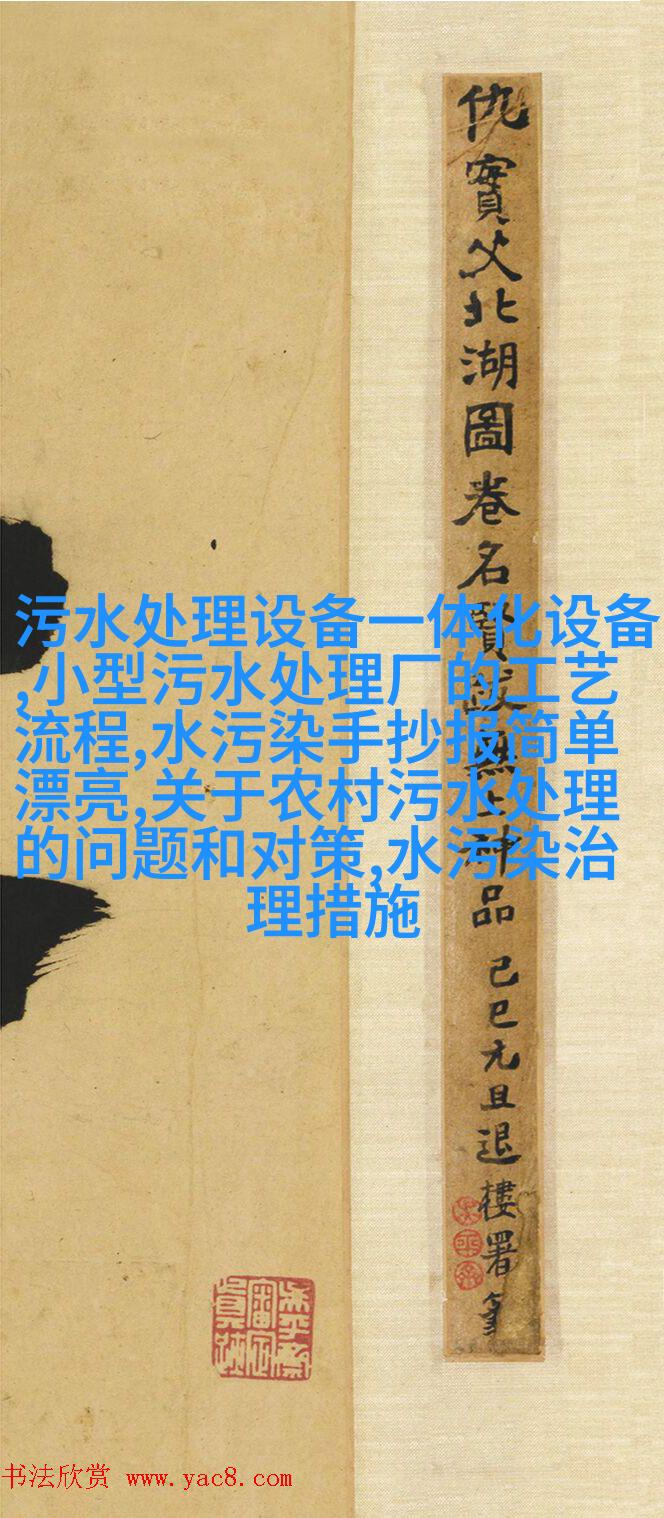 仇實父北湖圖卷名賢無上神品 己巳元旦退樓署
污水处理设备一体化设备
,小型污水处理厂的工艺
流程,水污染手抄报简单
漂亮,关于农村污水处理
的问题和对策,水污染治
理措施
吳平齋
審定
真跡
书法欣赏 www.yac8.com